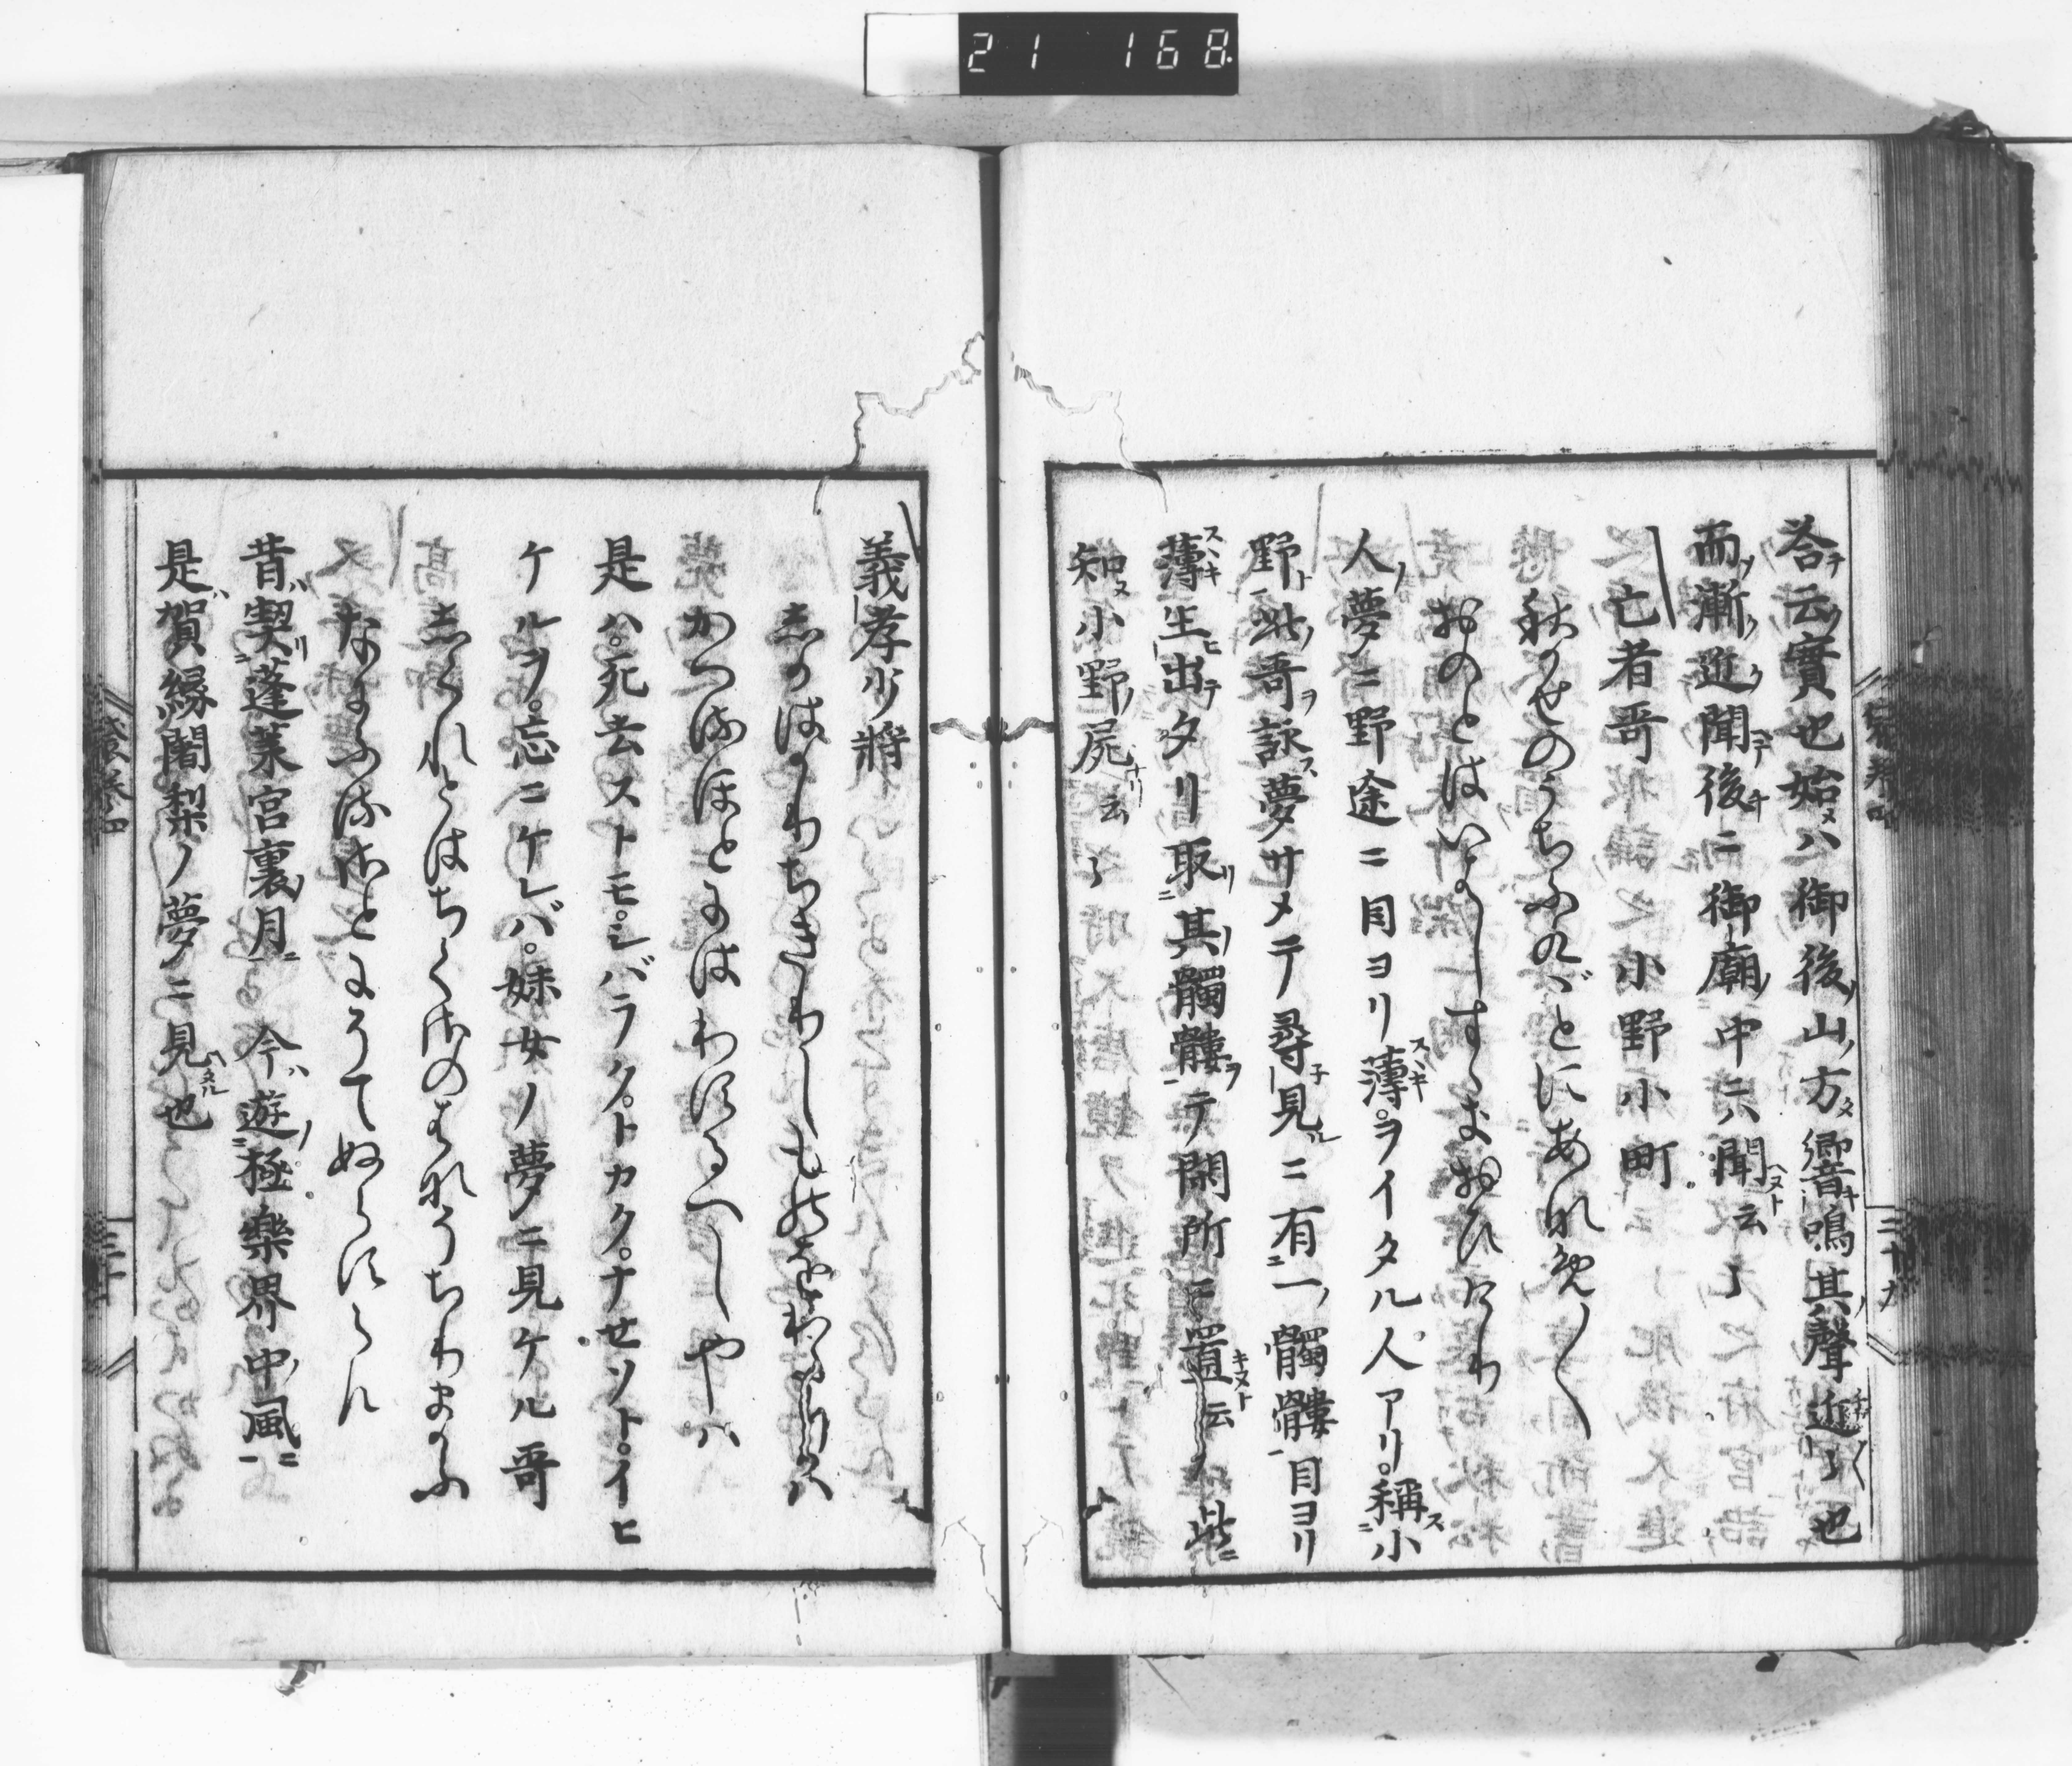 21 168
答云實也始ハ御後山方響鳴其聲近〻也
而漸近聞後ニ御廟中ニ聞云〻
亡者哥 小野小町
秋かせのうちふくごとにあなめ〳〵
おのとはいはしすゝきおひけり
人夢ニ野途ニ目ヨリ薄ヲイタル人アリ稱小
野此哥詠夢サメテ尋見ニ有一髑髏目ヨリ
薄生出タリ取其髑髏テ閑所ニ置云〻此
知小野屍云〻
義孝少將
しかはかりちきりしものをわたり川ハ
かへるほとにはわするへしやハ
是ハ死去ストモシバラクトカクナセソトイヒ
ケルヲ忘ニケレバ妹女ノ夢ニ見ケル哥
しくれとはちくさのはなそちりまかふ
なにふるさとにそてぬらすらん
昔契蓬莱宮裏月 今遊極樂界中風
是賀縁闍梨ノ夢ニ見也